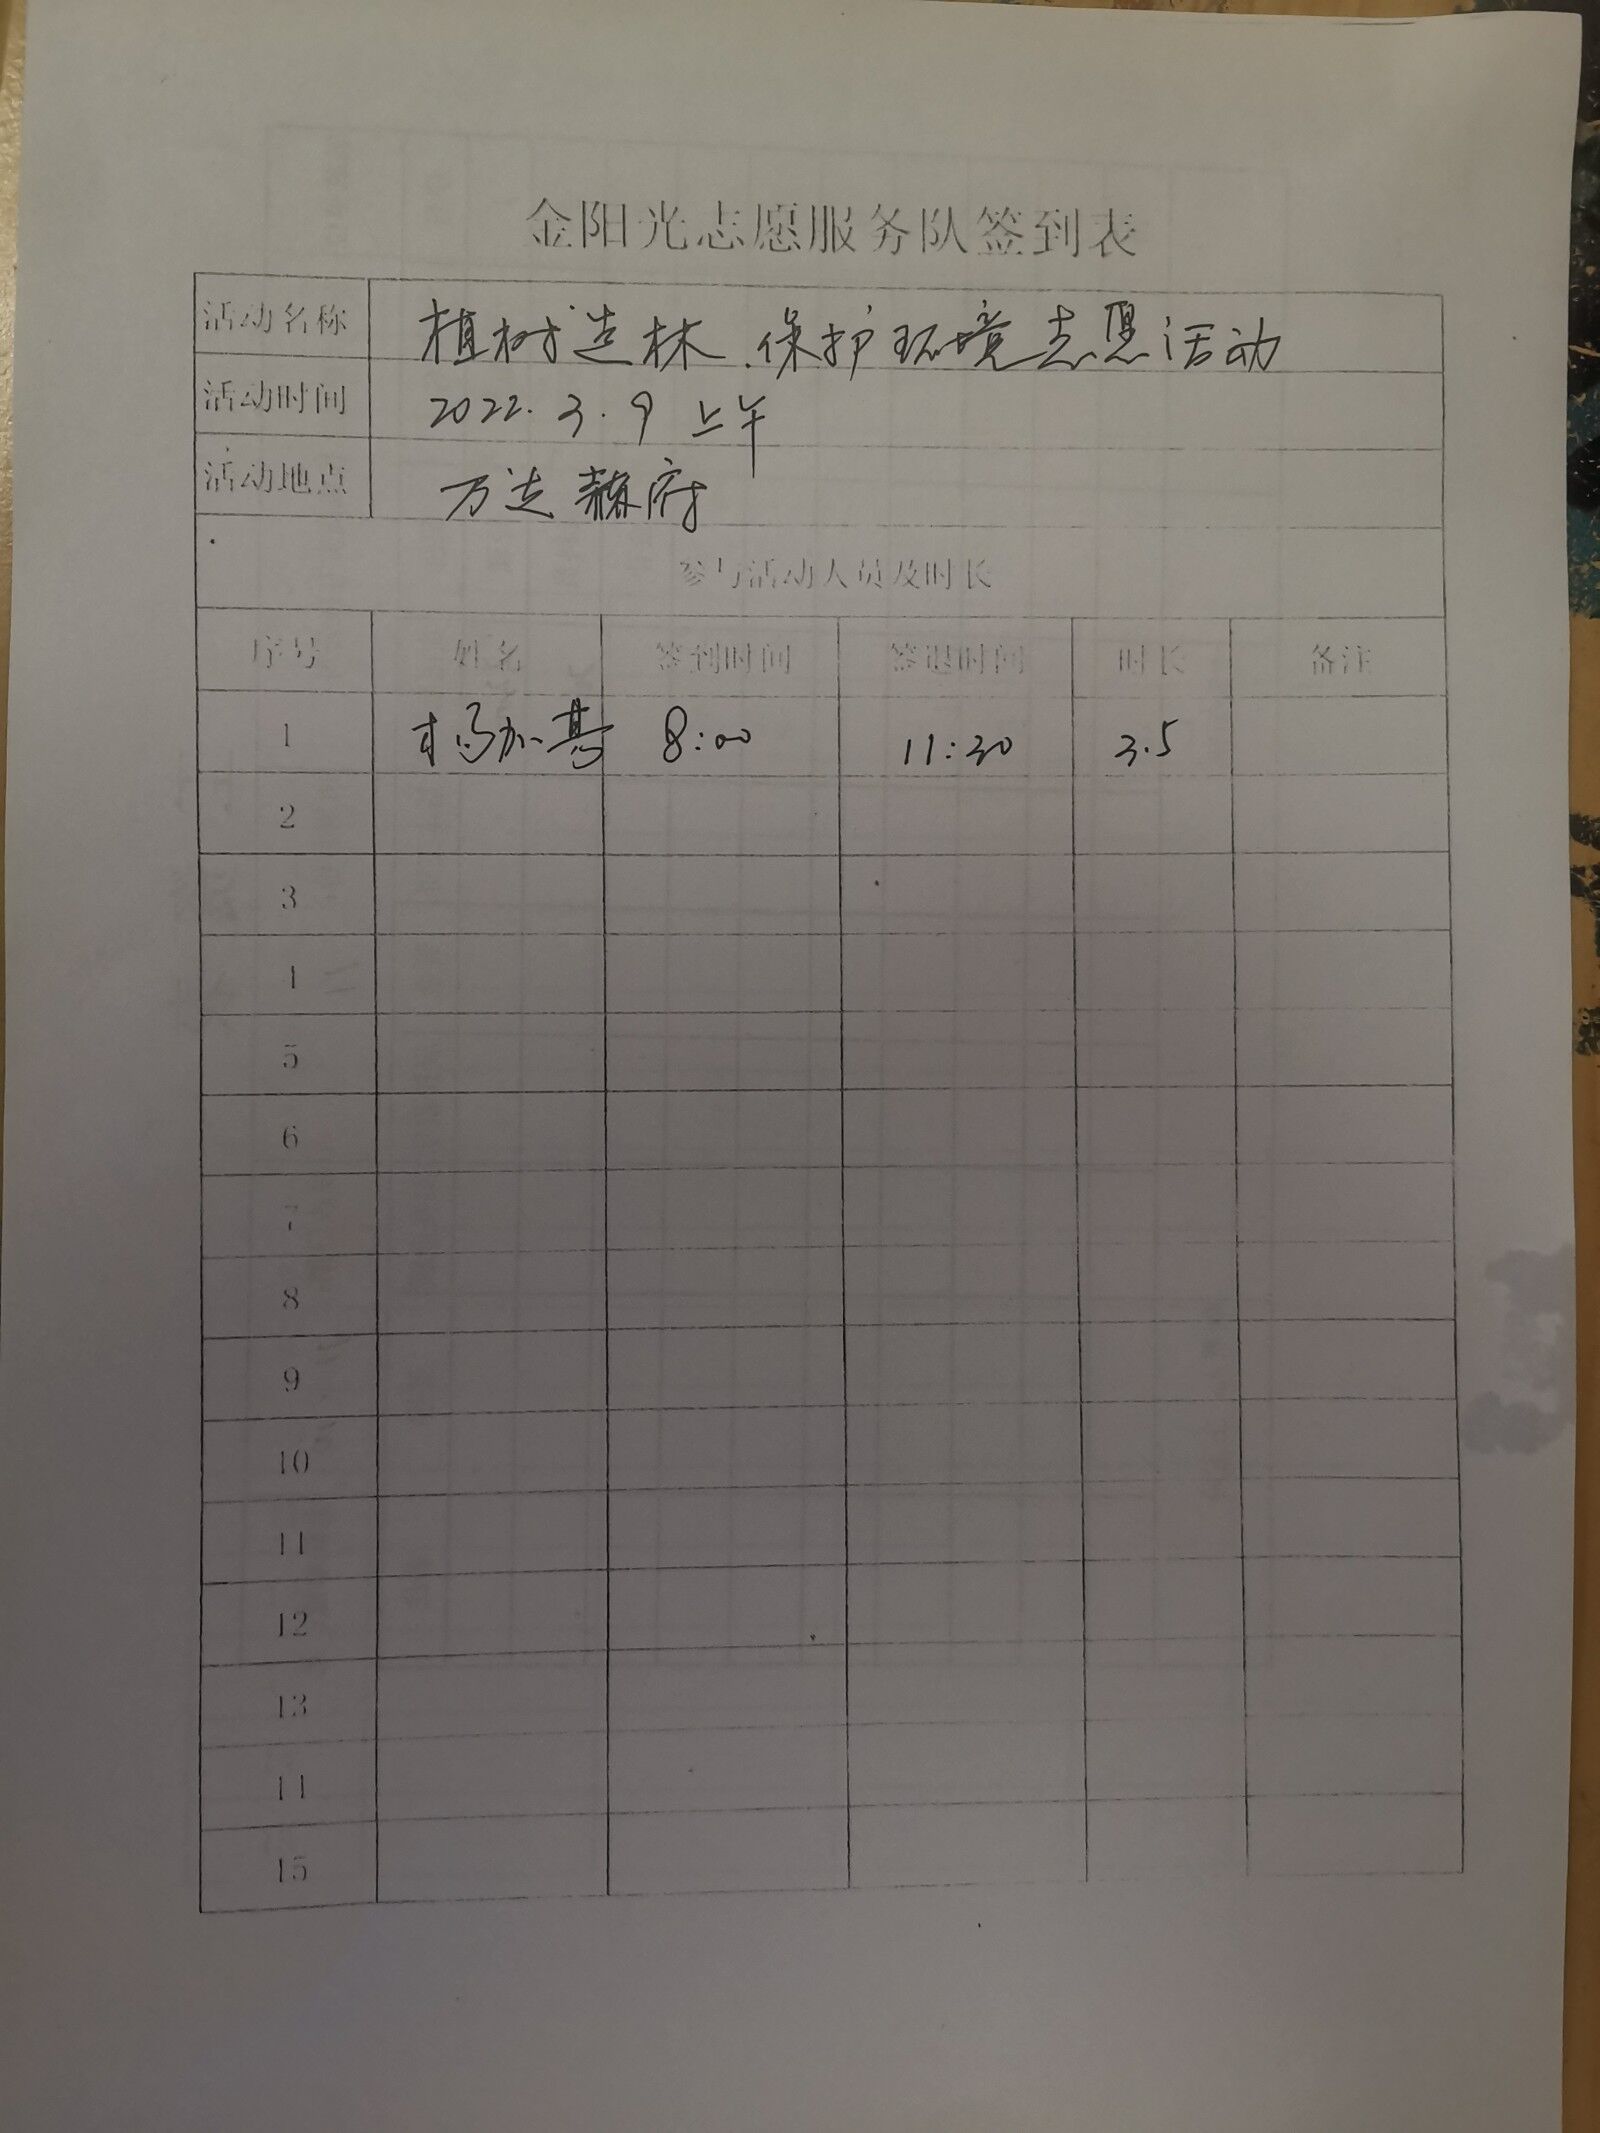 金阳光志愿服务队签到表
活动名称 植树造林、保护环境志愿活动
活动时间 2022.3.9 上午
活动地点 万达赫府
参与活动人员及时长
序号 姓名 签到时间 签退时间 时长 备注
1 杨加基 8:00 11:30 3.5
2
3
4
5
6
7
8
9
10
11
12
13
14
15